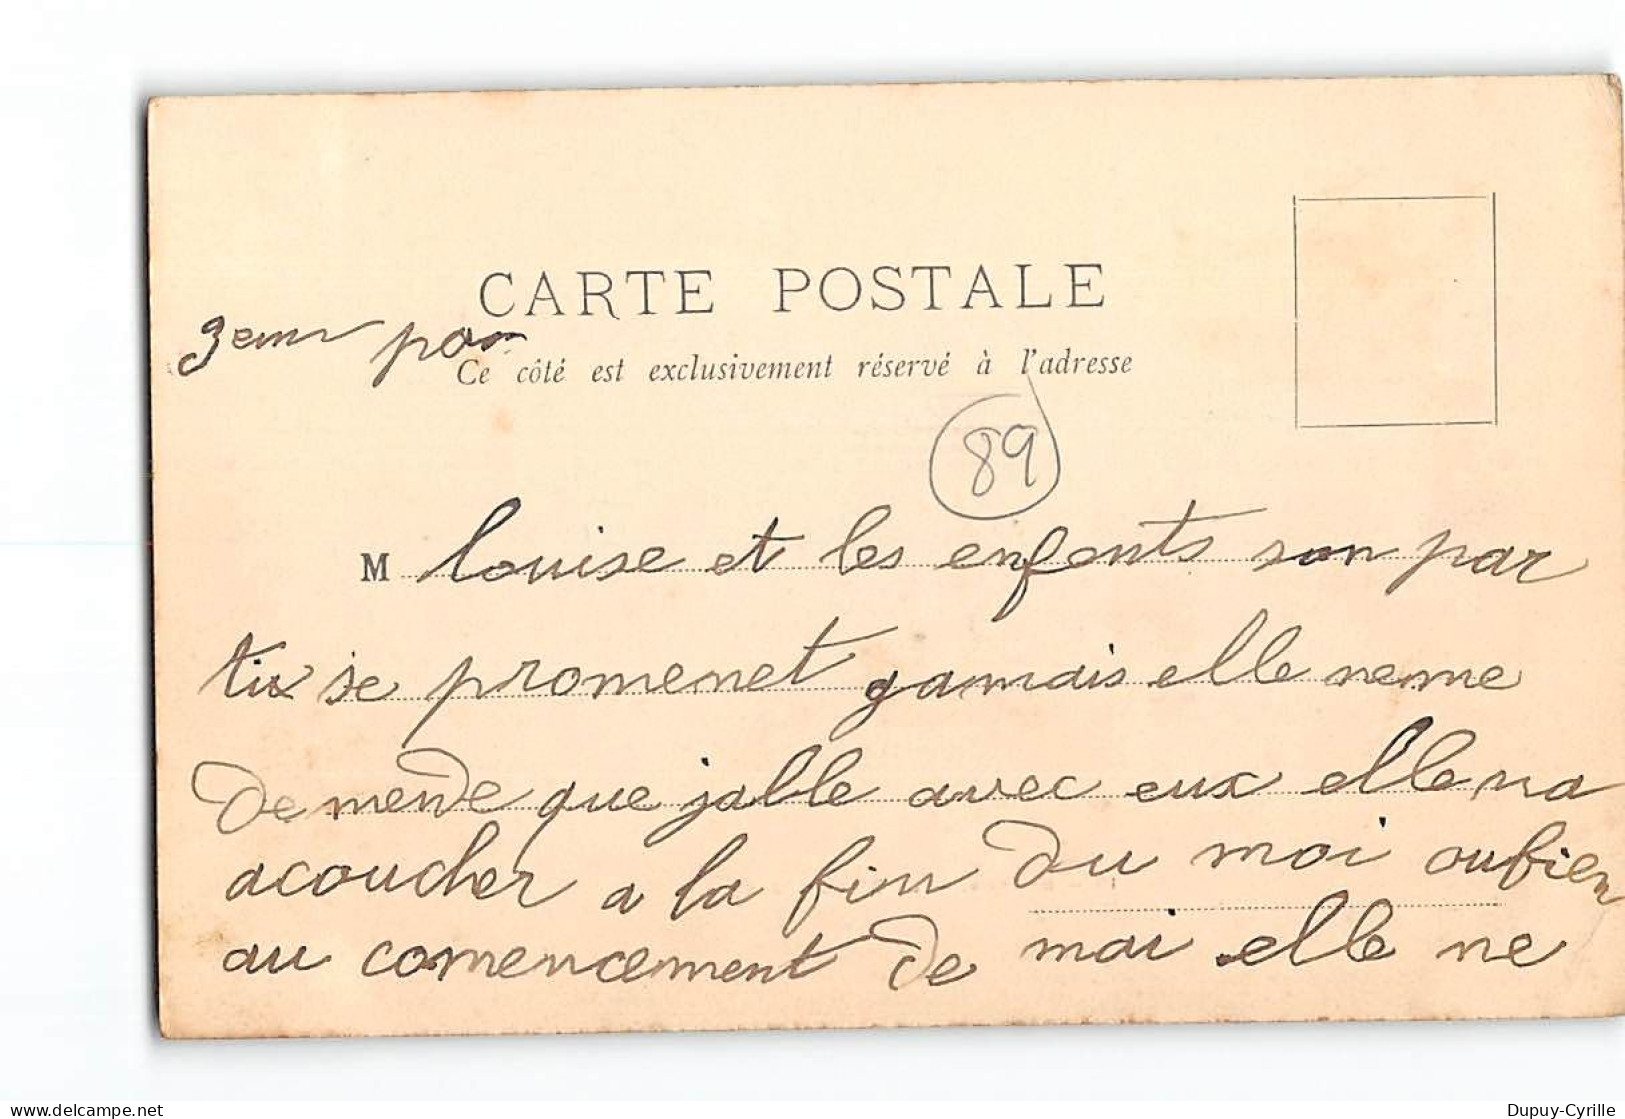 CARTE POSTALE
3em
Ce côté est exclusivement réservé à l'adresse
89
M louise et les enfents son par
tix se promenet gamais elle neme
demende que jalle avec eux elle va
acoucher a la fin du moi oubien
au comencement de mai elle ne
Dupuy-Cyrille